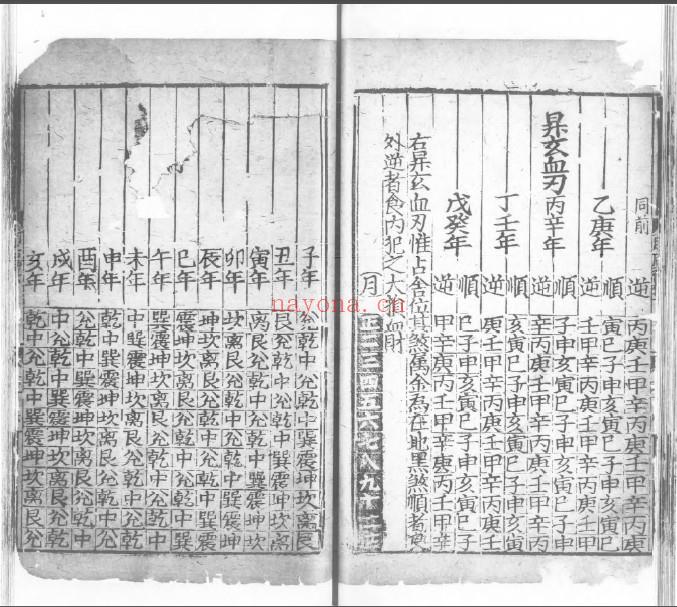 同前 逆 丙庚壬甲辛丙庚壬甲辛丙庚
乙庚年 順 寅巳子申亥寅巳子申亥寅巳
逆 壬甲辛丙庚壬甲辛丙庚壬甲
昇玄血刃 丙辛年 順 子申亥寅巳子申亥寅巳子申
逆 辛丙庚壬甲辛丙庚壬甲辛丙
丁壬年 順 亥寅巳子申亥寅巳子申亥寅
逆 庚壬甲辛丙庚壬甲辛丙庚壬
戊癸年 順 巳子申亥寅巳子申亥寅巳子
逆 甲辛丙庚壬甲辛丙庚壬甲辛
右昇玄血刃惟占全位其煞萬金為在地黑煞順者食
外逆者食内犯之大損血財
月 正二三四五六七八九十
子年 兌乾中兌乾中巽震坤坎离艮
丑年 艮兌乾中兌乾中巽震坤坎离
寅年 离艮兌乾中兌乾中巽震坤坎
卯年 坎离艮兌乾中兌乾中巽震坤
辰年 坤坎离艮兌乾中兌乾中巽震
巳年 震坤坎离艮兌乾中兌乾中巽
午年 巽震坤坎离艮兌乾中兌乾中
未年 中巽震坤坎离艮兌乾中兌乾
申年 乾中巽震坤坎离艮兌乾中兌
酉年 兌乾中巽震坤坎离艮兌乾中
戌年 中兌乾中巽震坤坎离艮兌乾
亥年 乾中兌乾中巽震坤坎离艮兌
nayona.cn